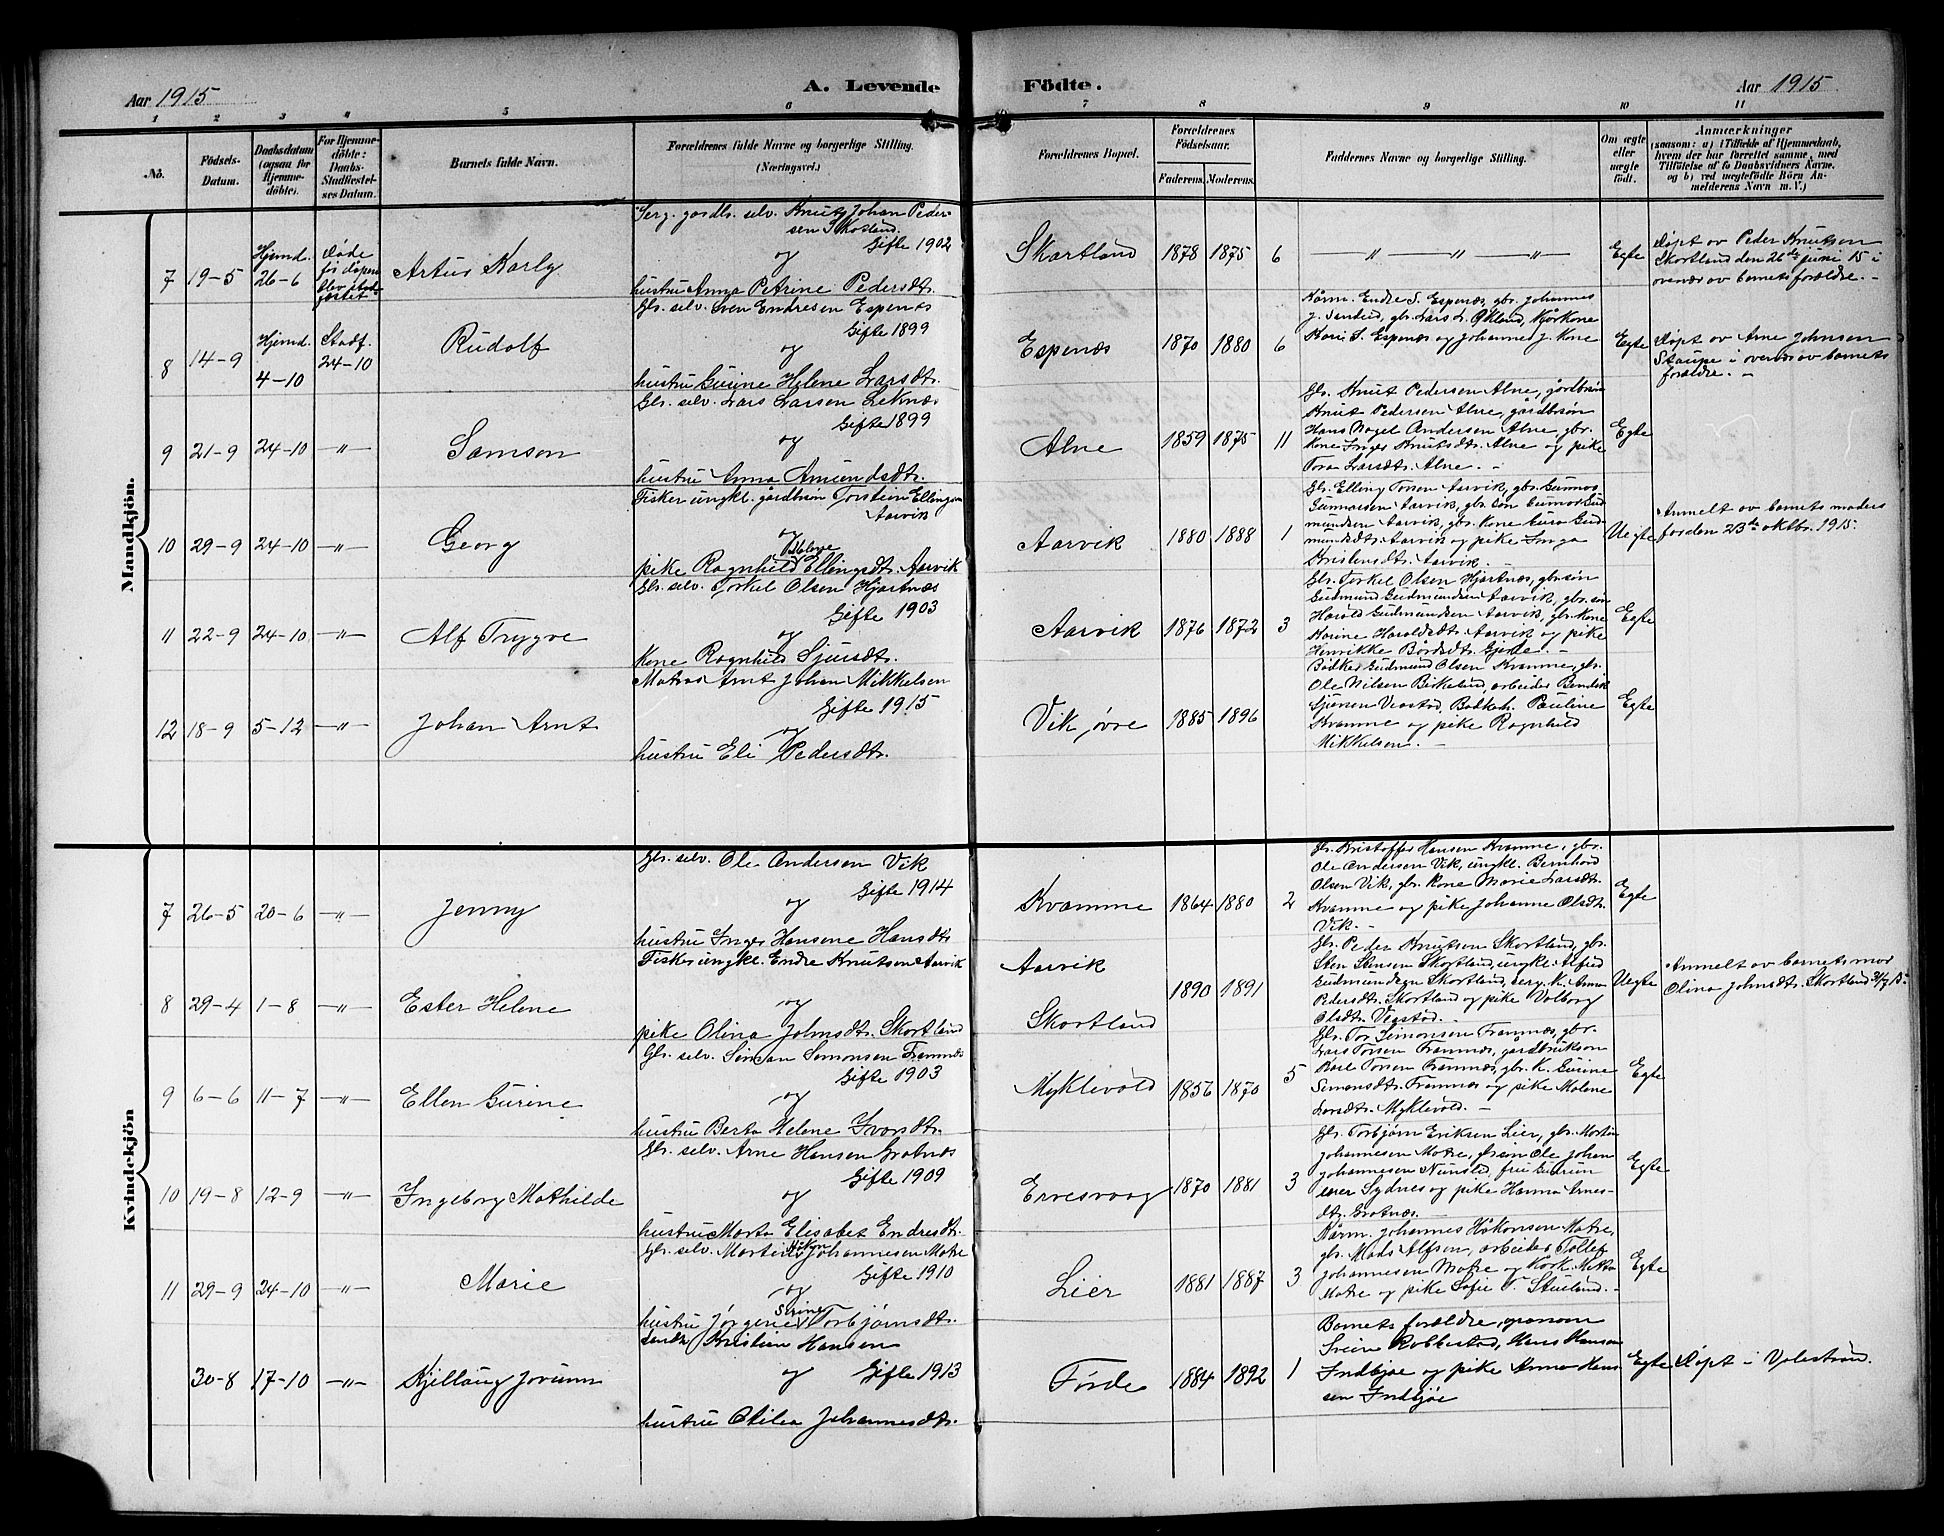 Aar 1915
A. Levende
Födte.
Aar 1915
1 2 3 4 5 6 7 8 9 10 11
No.
Födsels-
Datum.
Daabsdatum
(ogsaa for
Hjemme-
döbte).
For Hjemme-
döbte:
Daabs-
Stadfæstel-
ses Datum.
Barnets fulde Navn.
Forældrenes fulde Navne og borgerlige Stilling.
(Næringsvei.)
Forældrenes Bopæl.
Forældrenes
Födselsaar.
Faderens. Moderens.
Faddernes Navne og borgerlige Stilling.
Om ægte
eller
uægte
födt.
Anmærkninger
(saasom: a) i Tilfælde af Hjemmedaab,
hvem der har forrettet samme, med
Tilföielse af to Daabsvidners Navne,
og b) ved uægtefödte Börn An-
melderens Navn m. V.)
Mandkjön.
7 19-5
Hjemd.
26-6
Døde
før dåpen
blev stad-
fæstet
Artur Karly
Serg. gårdbr. selv. Knut Johan Peder-
sen Skortland.
Gifte 1902
og
hustru Anna Petrine Pedersdt.
Skartland 1878 1875 6
— " — " — " —
Egte
Døpt av Peder Knutsen
Skortland den 26de juni 15 i
overvær av barnets forældre. -
8 14-9
Hjemd.
4-10
Stadf.
24-10
Rudolf
Gbr. selv. Sven Endresen Espenæs
Gifte 1899
og
hustru Gurine Helene Larsdtr.
Espenæs 1870 1880 6
Kårm. Endre S. Espenæs, gbr. Johannes
J. Sandvid, gbr. Lars L. Økland, Kårkone
Kari S. Espenæs og Johannes J. Kone
Egte
Døpt av Arne Johnsen
Staupe i overvær av barnets
forældre. -
9 21-9 24-10 —"—
Samson
Gbr. selv. Lars Larsen Leknæs
Gifte 1899
og
hustru Anna Amundsdtr.
Alne 1859 1875 11
Gbr. Knut Pedersen Alne, gårdbrsøn
Knut Pedersen Alne, gårdbrsøn
Hans Nagel Andersen Alne, gbr.
kone Inger Knutsdtr. Alne og pike
Tora Larsdtr. Alne. -
Egte
10 29-9 24-10 —"—
Georg
Fisker ungkl. gårdbrsøn Torstein Ellingsen
Aarvik
og
pike Ragnhild Malene Ellingsdtr. Aarvik
Aarvik 1880 1888 1
Gbr. Elling Torsen Aarvik, gbr. Gunnar
Gunnarsen Aarvik, gbr. søn Gunnar Gud-
mundsen Aarvik, gbr. kone Guro Gud-
mundsdtr. Aarvik og pike Inga
Kristensdtr. Aarvik. -
Uegte
Anmelt av barnets moders
far den 23de oktbr. 1915.
11 22-9 24-10 —"—
Alf Trygve
Gbr. selv. Torkel Olsen Hjartnæs
Gifte 1903
og
kone Ragnhild Sjursdtr.
Aarvik 1876 1872 3
Gbr. Torkel Olsen Hjartnæs, gbr. søn
Gudmund Gudmundsen Aarvik, gbr. søn
Harald Gudmundsen Aarvik, gbr. kone
Karine Haraldsdtr. Aarvik og pike
Henrikke Bårdsdtr. Gjerde. -
Egte
12 18-9 5-12 —"—
Johan Arnt
Matros Arnt Johan Mikkelsen
Gifte 1915
og
hustru Eli Pedersdtr.
Vik, øvre 1885 1896
Bødker Gudmund Olsen Kvamme, gbr.
Ole Nilsen Birkeland, arbeider Bendik
Sjursen Vegstød, Bødkerh. Pauline
Kvamme og pike Ragnhild
Mikkelsen. -
Egte
Kvindekjön
7 26-5 20-6 —"—
Jenny
Gbr. selv. Ole Andersen Vik
Gifte 1914
og
hustru Inger Hansene Hansdtr
Kvamme 1864 1880 2
Gbr. Kristoffer Hansen Kvamme, gbr.
Ole Andersen Vik, ungkl. Bernhard
Olsen Vik, gbr. kone Marie Larsdtr.
Kvamme og pike Johanne Olsdtr.
Vik. -
Egte
8 29-4 1-8 —"—
Ester Helene
Fisker ungkl. Endre Knutsen Aarvik
og
pike Olina Johnsdtr. Skortland
Aarvik
Skortland
1890 1891
Gbr. Peder Knutsen Skortland, gbr.
Sten Stensen Skortland, ungkl. Alfred
Gudmundsen Skortland, serg. k. Anna
Pedersdtr. Skortland og pike Valborg
Olsdtr. Vegstød. -
Uegte
Anmelt av barnets mor
Olina Johnsdtr. Skortland 31/7 15.
9 6-6 11-7 —"—
Ellen Gurine
Gbr. selv. Simon Simonsen Framnæs
Gifte 1903
og
hustru Berta Helene Ivarsdtr.
Myklevold 1856 1870 5
Gbr. Tor Simonsen Framnæs, gbr.
Lars Torsen Framnæs, gårdbrukson
Karl Torsen Framnæs, gbr. k. Gurine
Simonsdtr. Framnæs og pike Malene
Larsdtr. Myklevold. -
Egte
10 19-8 12-9 —"—
Ingeborg Mathilde
Gbr. selv. Arne Hansen Grotnæs
Gifte 1909
og
hustru Marta Elisabet Endresdtr.
Ervesvaag 1870 1881 3
Gbr. Torbjørn Eriksen Lier, gbr. Martin
Johannesen Matre, gbrsøn Ole Johan
Johannesen Nunsted, frue Gudrun
Sydnes og pike Hanna Arnes-
dtr. Grotnæs. -
Egte
11 29-9 24-10 —"—
Marie
Gbr. selv. Martin Håkon Johannesen Matre
Gifte 1910
og
hustru Jørgine Serine Torbjørnsdtr.
Lier 1881 1887 3
Kårm. Johannes Håkonsen Matre,
gbr. Mads Alfsen, arbeider Tollef
Johannesen Matre og Kårk.
Matre og pike Sofie T. Stueland. -
Egte
30-8 17-10 —"—
Kjellaug Jorunn
Kristian Hansen
og Gifte 1913
hustru Otilia Johannesdtr.
Førde 1884 1892 1
Barnets forældre,
Svein Robberstad, Hans Hansen
Indbjoe og pike Anna Han-
sen Indbjoe
Egte
Døpt i Valestrand.